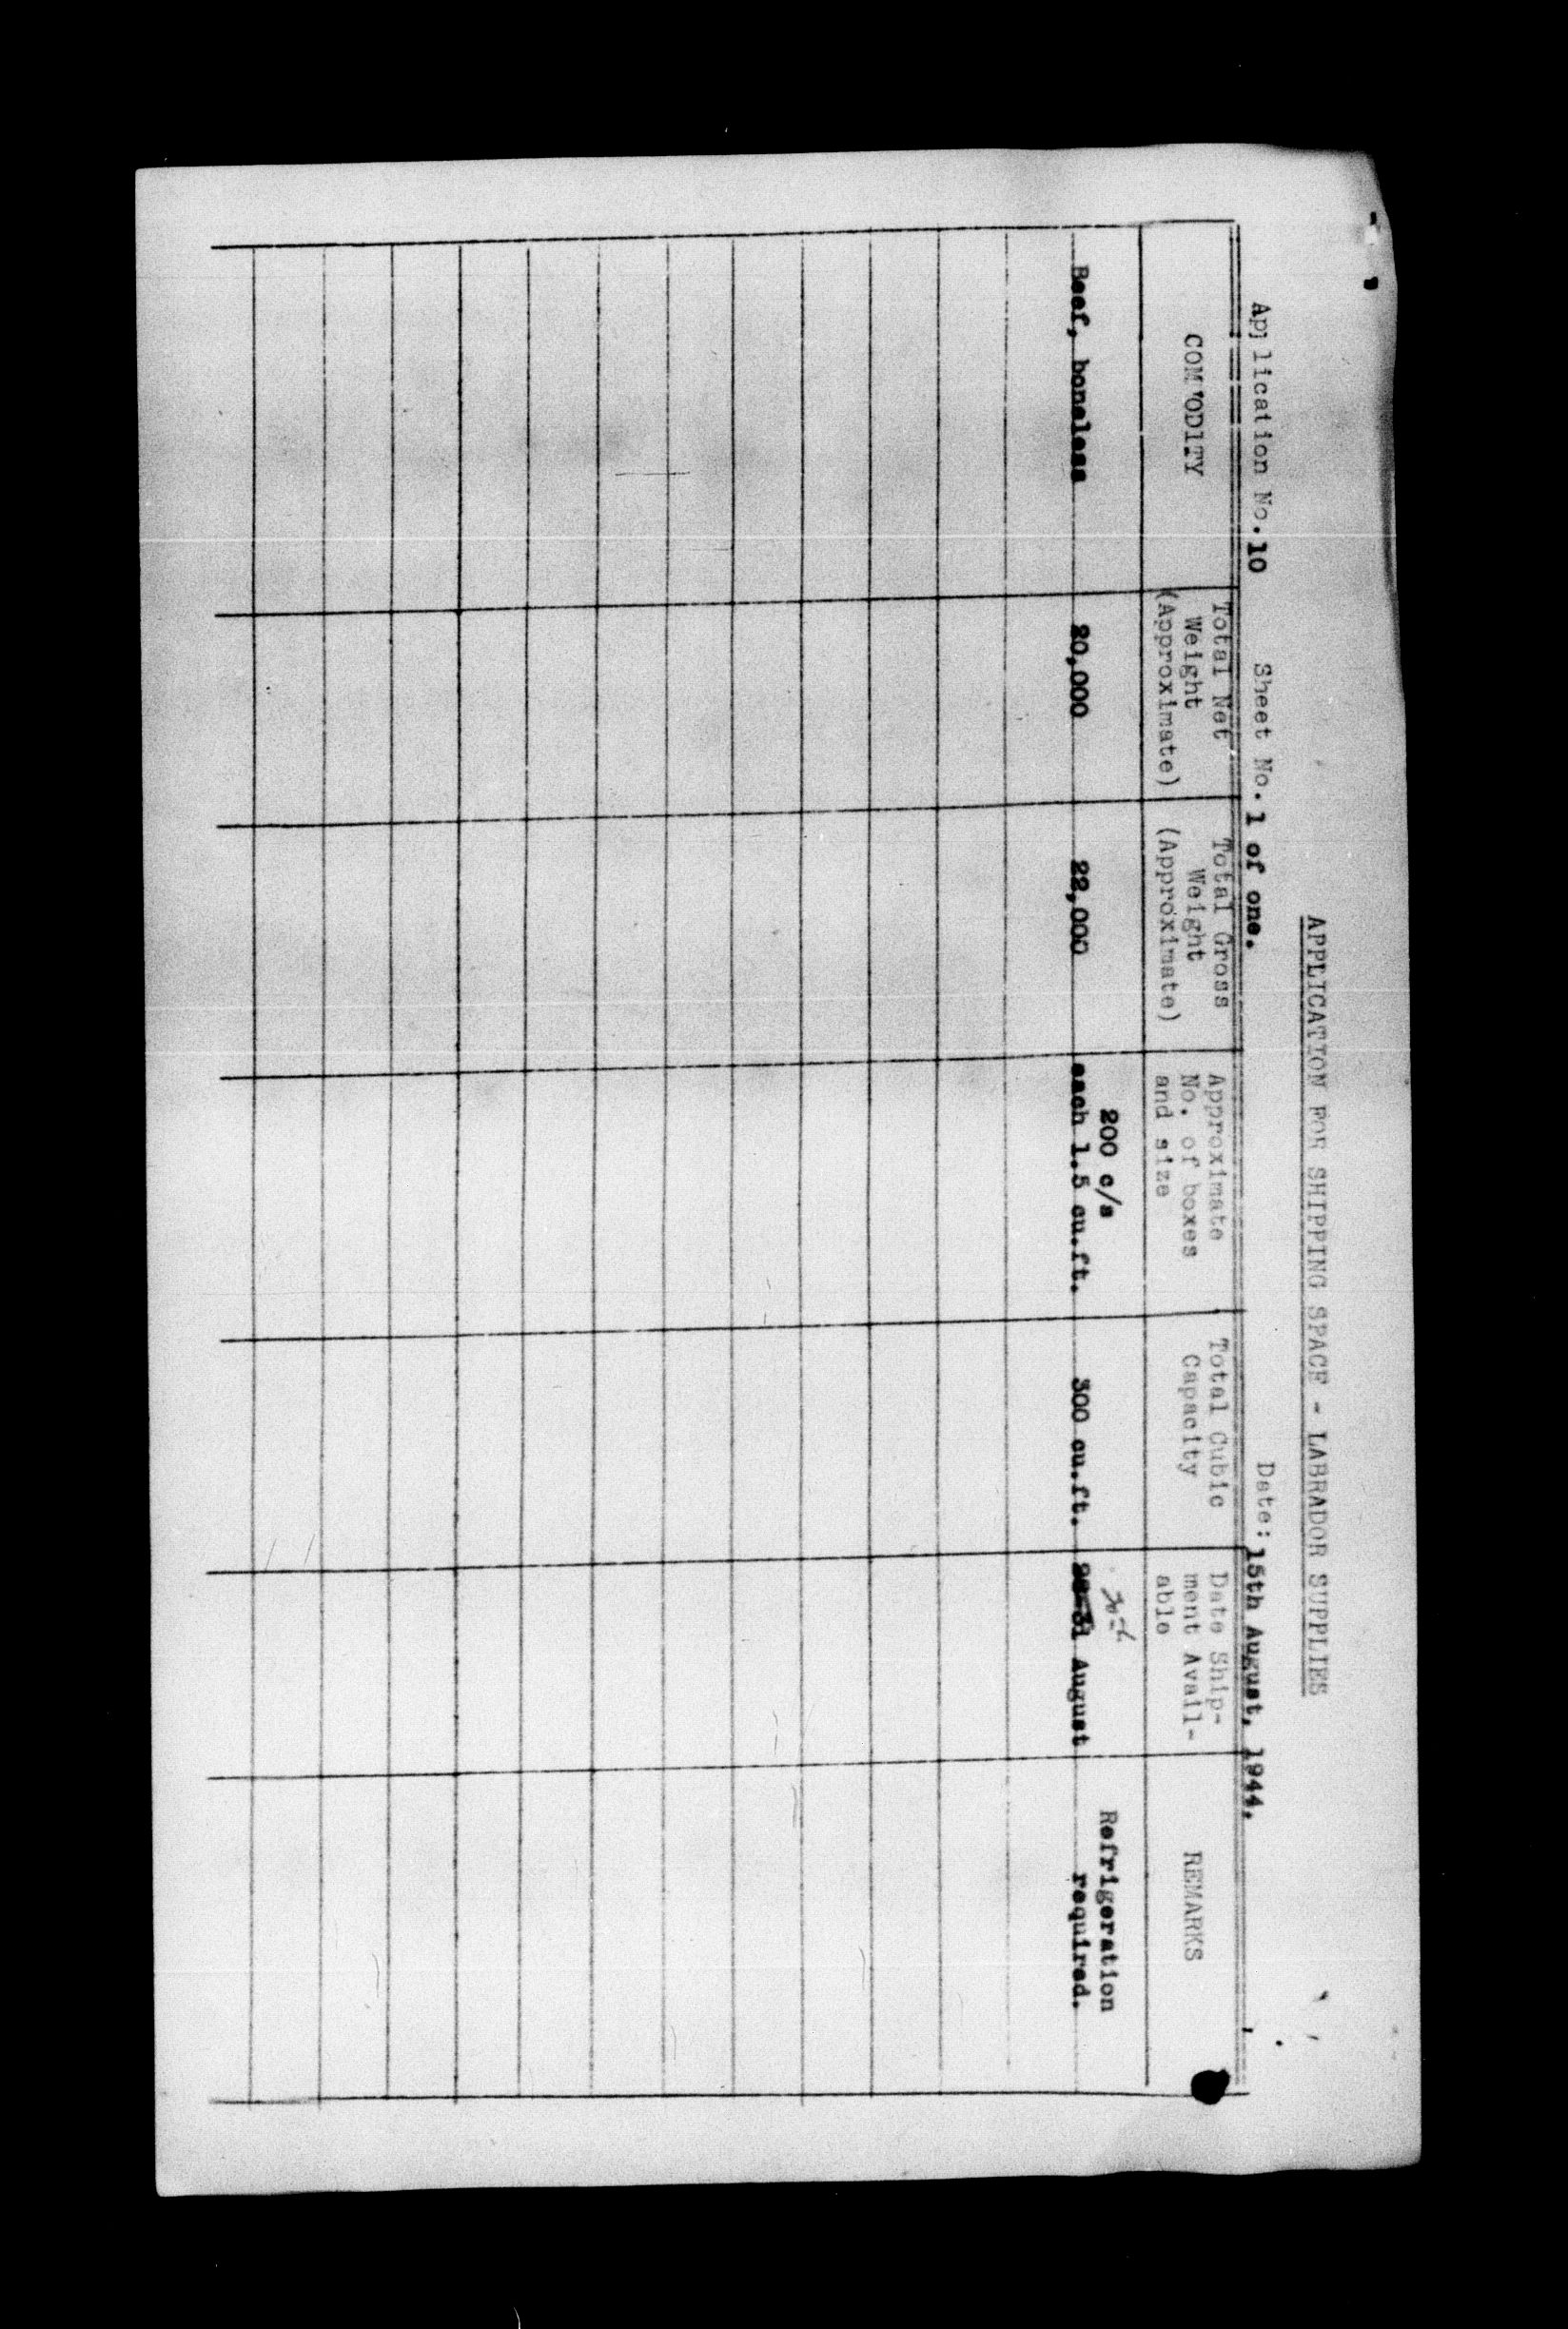 APPLICATION FOR SHIPPING SPACE - LABRADOR SUPPLIES
Application No. 10 Sheet No. 1 of one. Date: 15th August, 1944.
COM'ODITY
Total Net
Weight
(Approximate)
Total Gross
Weight
(Approximate)
Approximate
No. of boxes
and size
Total Cubic
Capacity
Date Ship-
ment Avail-
able
REMARKS
Beef, boneless
20,000
22,000
200 c/s
each 1.5 cu.ft.
300 cu.ft.
28-31 August
Refrigeration
required.